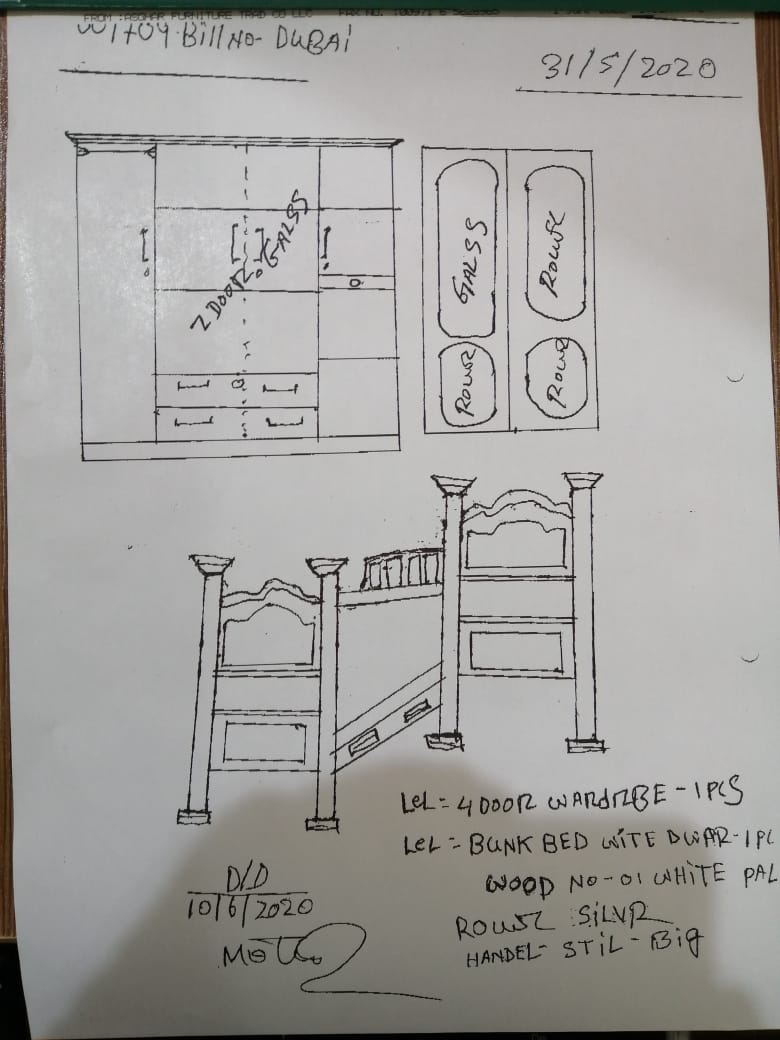 FROM :ASOMAR FURNITURE TRAD CO LLC FAX NO. :00971 6
Bill No- DUBAi
31/5/2020
2 DOOR GALSS
GALSS
ROWSL
ROWSR
ROWR
LeL = 4 DOOR WARdRBE - 1 PCS
LeL = BUNK BED WiTE DWAR - 1 PC
WOOD NO-01 WHiTE PAL
ROWSL SiLVR
HANDEL- STiL - Big
D/D
10/6/2020